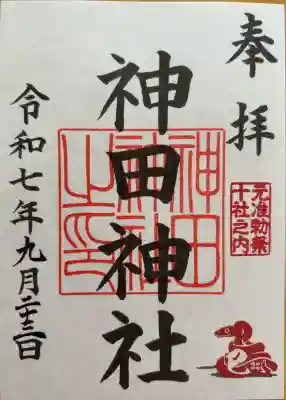 奉拝
元准勅祭
十社之内
神田神社
神田神社之印
令和七年九月二十三日